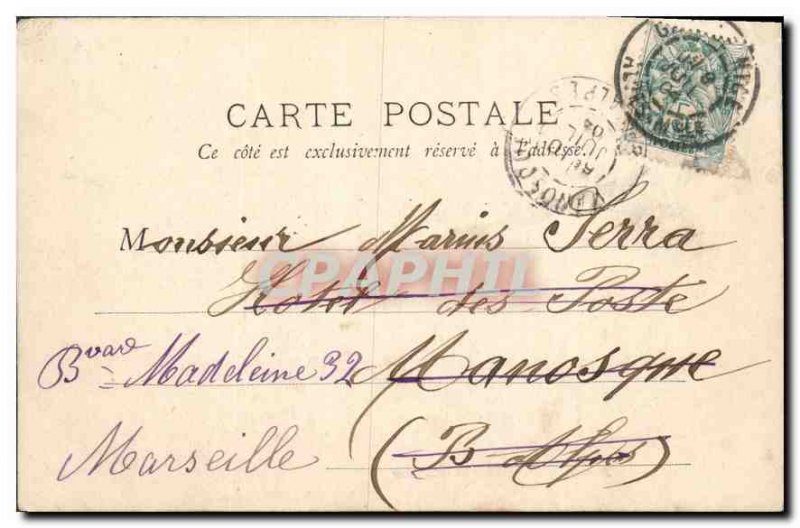 CARTE POSTALE
Ce côté est exclusivement réservé à l'adresse.
Monsieur Marius Serra
Hotel des Poste
Bvard Madeleine 32 Manosque
Marseille (B Alpes)
CPAPHIL